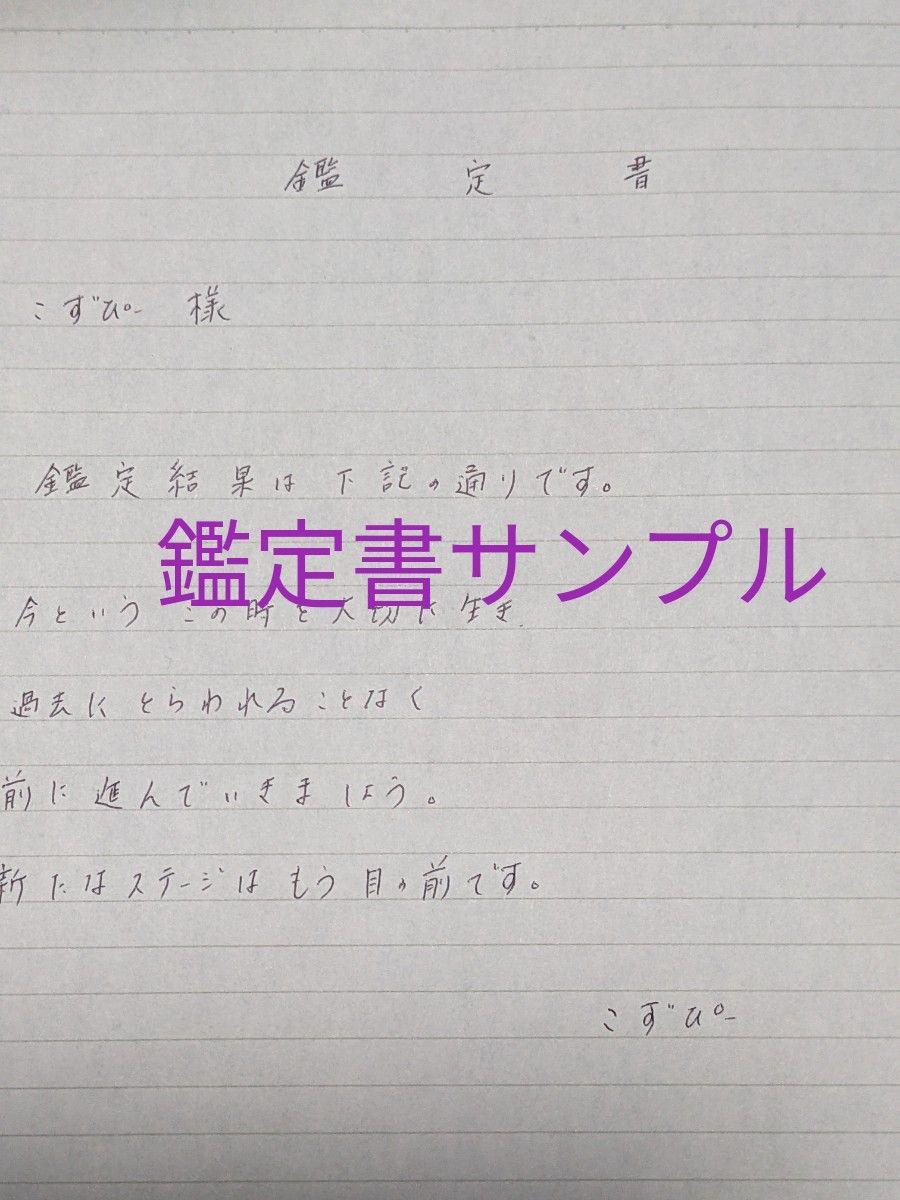 鑑定書
こずぴー 様
鑑定結果は下記の通りです。
鑑定書サンプル
今というこの時を大切に生き、
過去にとらわれることなく
前に進んでいきましょう。
新たなステージはもう目の前です。
こずぴー